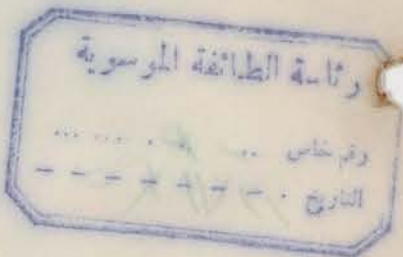 رئاسة الطائفة الموسوية
رقم خاص .. .. . ... ...
التاريخ . - - - - - - -